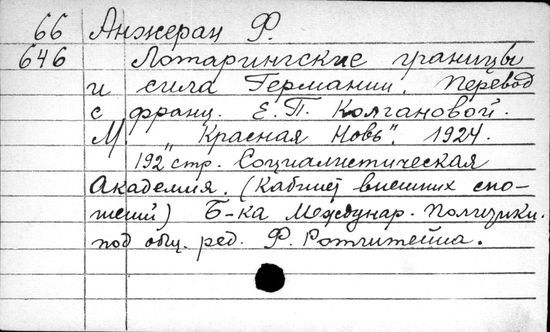 66 Анжеран Ф.
646 Лотарингские границы
и сила Германии. Перевод
с франц. Е.П. Колгановой.
М. "Красная Новь". 1924.
192 стр. Социалистическая
Академия. (Кабинет внешних сно-
шений) Б-ка Междунар. Политики.
под общ. ред. Ф. Ротштейна.